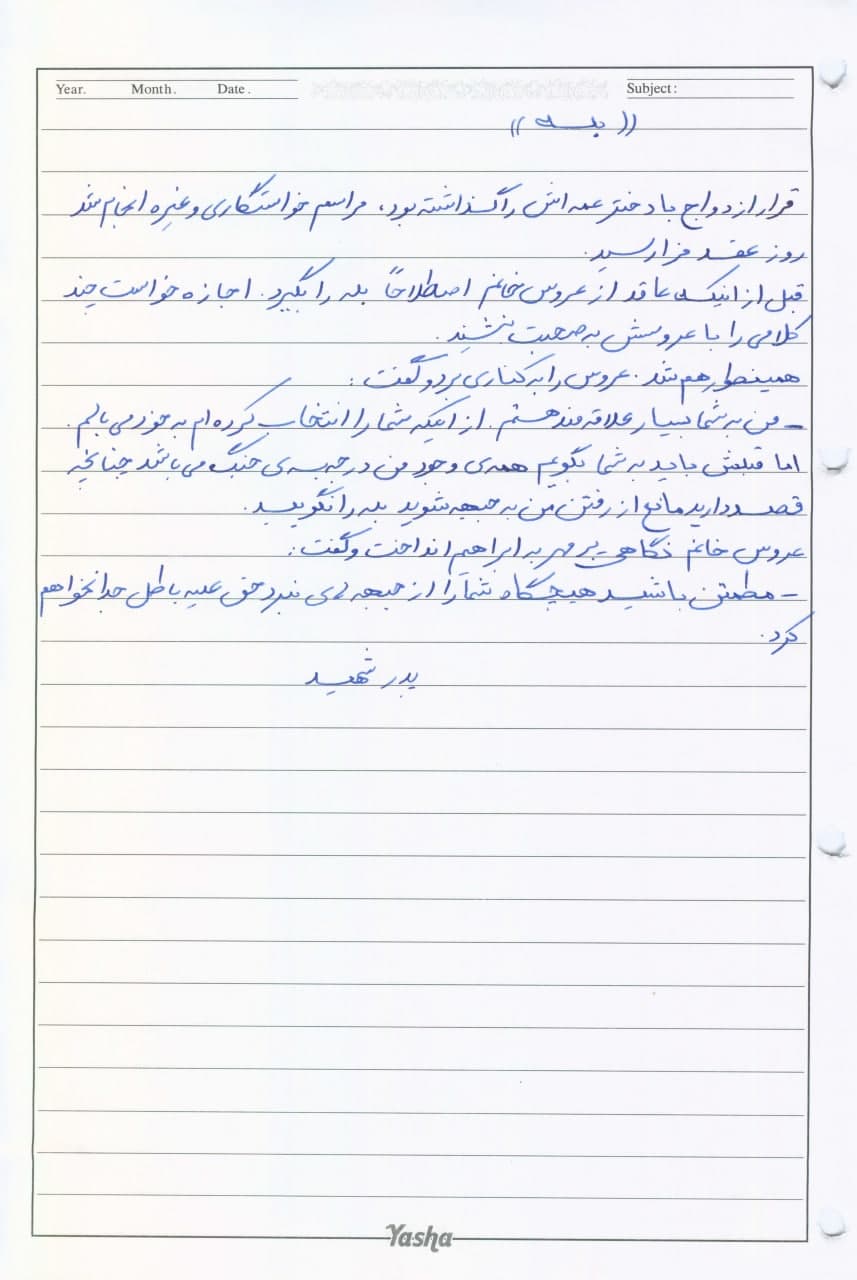 Year. Month. Date. Subject:
(( بله ))
قرار ازدواج با دختر عمه اش را گذاشته بود، مراسم خواستگاری و غیره انجام شد
روز عقد فرا رسید.
قبل از اینکه عاقد از عروس خانم اصطلاحاً بله را بگیرد. اجازه خواست چند
کلامی را با عروسش به صحبت بنشیند.
همینطور هم شد. عروس را به کناری برد و گفت:
- من به شما بسیار علاقه مند هستم. از اینکه شما را انتخاب کرده ام به خود می بالم.
اما قبلش باید به شما بگویم همه ی وجود من در جبهه ی جنگ می باشد چنانچه
قصد دارید مانع از رفتن من به جبهه شوید بله را نگویید.
عروس خانم نگاهی پر مهر به ابراهیم انداخت و گفت:
- مطمئن باشید هیچگاه شما را از جبهه ی نبرد حق علیه باطل جدا نخواهم
کرد.
پدر شهید
Yasha